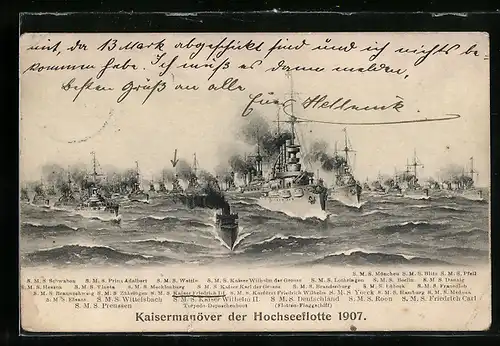 mit, da 13 Mark abgeschickt sind und ich nichts be-
kommen habe. Ich muß es dann melden,
besten Gruß an alle
Euer Hellmuth
S. M. S. München S. M. S. Blitz S. M. S. Pfeil
S. M. S. Schwaben S. M. S. Prinz Adalbert S. M. S. Wettin S. M. S. Kaiser Wilhelm der Grosse S. M. S. Lothringen S. M. S. Berlin S. M. S. Danzig
S. M. S. Hessen S. M. S. Vineta S. M. S. Mecklenburg S. M. S. Kaiser Karl der Grosse S. M. S. Brandenburg S. M. S. Lübeck S. M. S. Frauenlob
S. M. S. Braunschweig S. M. S. Zähringen S. M. S. Kaiser Friedrich III. S. M. S. Kurfürst Friedrich Wilhelm S. M. S. Yorck S. M. S. Hamburg S. M. S. Medusa
S. M. S. Elsass S. M. S. Wittelsbach S. M. S. Kaiser Wilhelm II. S. M. S. Deutschland S. M. S. Roon S. M. S. Friedrich Carl
S. M. S. Preussen Torpedo-Depeschenboot (Flotten-Flaggschiff)
Kaisermanöver der Hochseeflotte 1907.